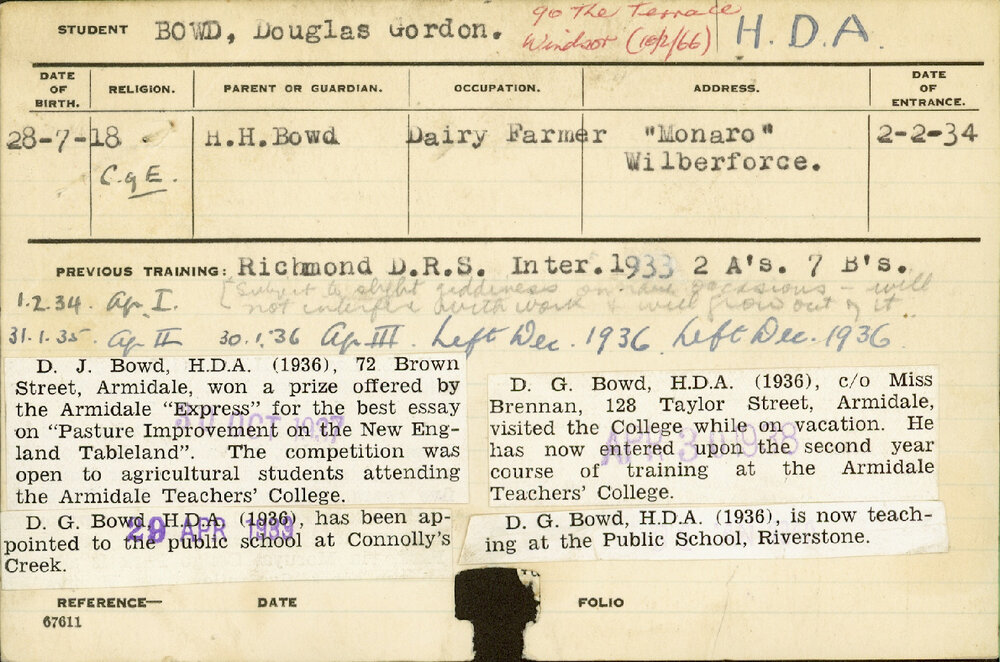 STUDENT BOWD, Douglas Gordon. 90 The Terrace H.D.A.
Windsor (10/2/66)
DATE OF BIRTH. RELIGION. PARENT OR GUARDIAN. OCCUPATION. ADDRESS. DATE OF ENTRANCE.
28-7-18 H.H.Bowd Dairy Farmer "Monaro" 2-2-34
C of E. Wilberforce.
PREVIOUS TRAINING: Richmond D.R.S. Inter.1933 2 A's. 7 B's.
1.2.34. Ag. I. [Subject to slight giddiness on rare occasions - will
not interfere with work & will grow out of it..
31.1.35. Ag II 30.1.36 Ag. III. Left Dec. 1936. Left Dec. 1936.
D. J. Bowd, H.D.A. (1936), 72 Brown
Street, Armidale, won a prize offered by
the Armidale "Express" for the best essay
on "Pasture Improvement on the New Eng-
land Tableland". The competition was
open to agricultural students attending
the Armidale Teachers' College.
OCT 1937
D. G. Bowd, H.D.A. (1936), c/o Miss
Brennan, 128 Taylor Street, Armidale,
visited the College while on vacation. He
has now entered upon the second year
course of training at the Armidale
Teachers' College.
APR 30 1938
D. G. Bowd, H.D.A. (1936), has been ap-
pointed to the public school at Connolly's
Creek.
29 APR 1939
D. G. Bowd, H.D.A. (1936), is now teach-
ing at the Public School, Riverstone.
REFERENCE— DATE FOLIO
67611